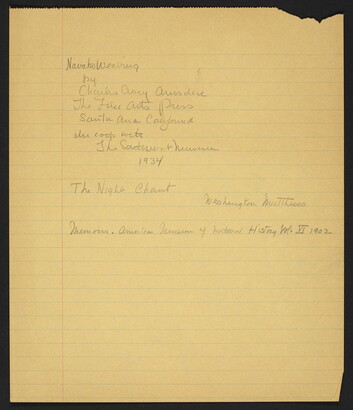 Navaho Weaving
by
Charles Avery Amsden
The Fine Arts Press
Santa Ana California
in coop with
The Southwest Museum
1934
The Night Chant
Washington Matthews
Memoirs. American Museum of Natural History Vol. VI 1902